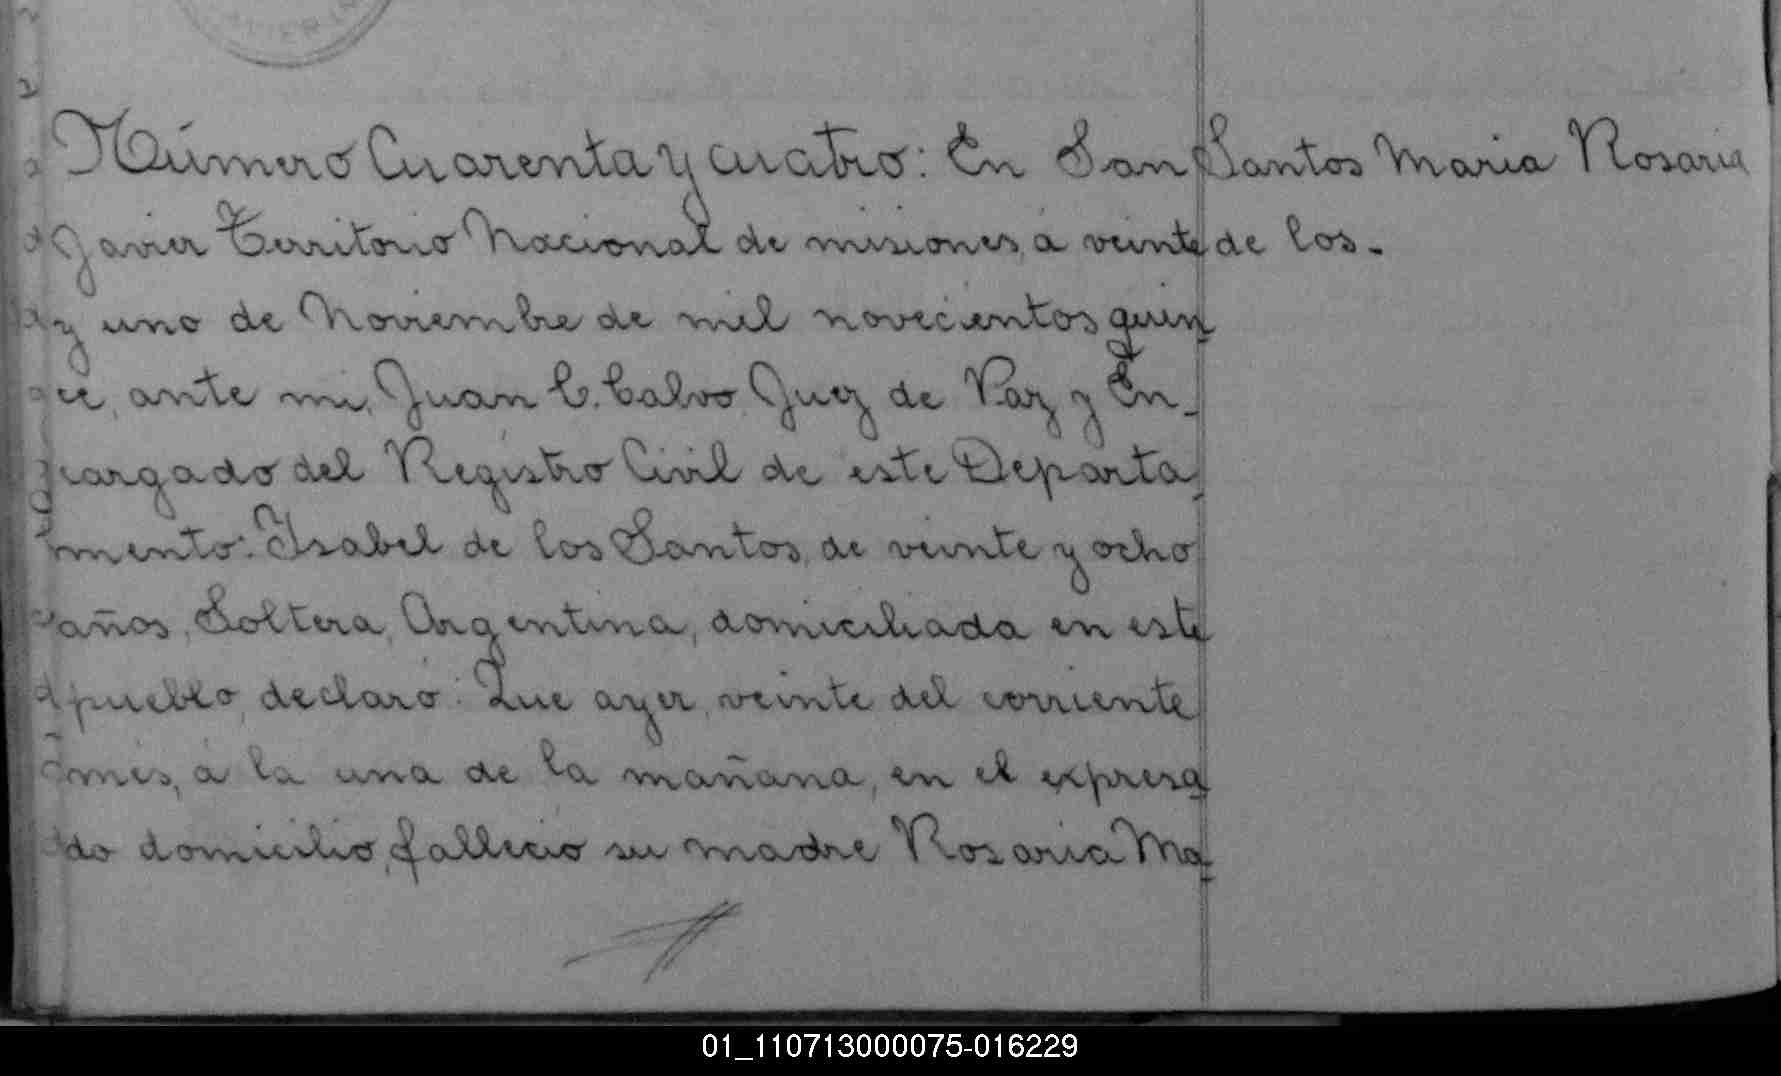 Número Cuarenta y cuatro: En San
Javier Territorio Nacional de misiones, á veinte
y uno de Noviembre de mil novecientos quin
ce, ante mi, Juan C. Calvo Juez de Paz y En-
cargado del Registro Civil de este Departa
mento: Isabel de los Santos, de veinte y ocho
años, Soltera, Argentina, domiciliada en este
pueblo, declaró: Que ayer, veinte del corriente
mes, á la una de la mañana, en el expresa
do domicilio, falleció su madre Rosaria Ma
Santos Maria Rosaria
de los.
01_110713000075-016229